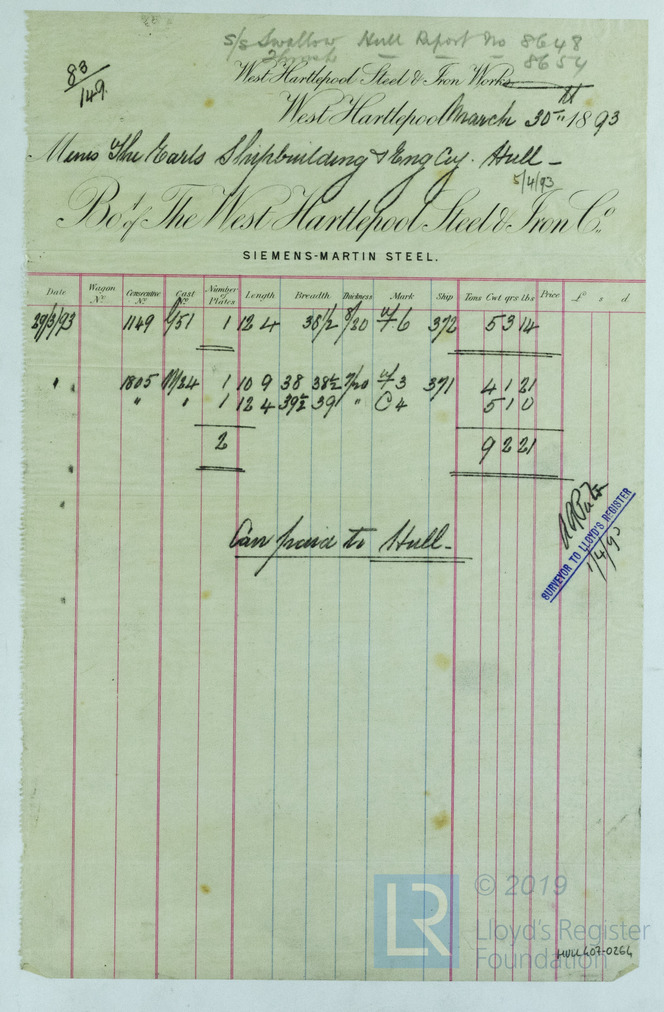 S/S Swallow Hull Report No 8648
8654
83/149
West Hartlepool Steel & Iron Works
West Hartlepool March 30th 1893
Messrs The Earls Shipbuilding & Eng Coy. Hull -
5/4/93
Bot. of The West Hartlepool Steel & Iron Co.
SIEMENS-MARTIN STEEL.
Date Wagon No. Consecutive No. Cast No. Number of Plates Length Breadth Thickness Mark Ship Tons Cwt qrs lbs Price £ s d.
29/3/93 1149 1 12 4 38 1/2 8/20 6 372 5 3 14
" 1805 1 10 9 38 38 1/2 7/20 3 371 4 1 21
" " 1 12 4 39 1/2 39 " C 4 5 1 0
2 9 2 21
Carr paid to Hull -
SURVEYOR TO LLOYD'S REGISTER
1/4/93
LR
© 2019
Lloyd's Register
Foundation
HULL407-0264